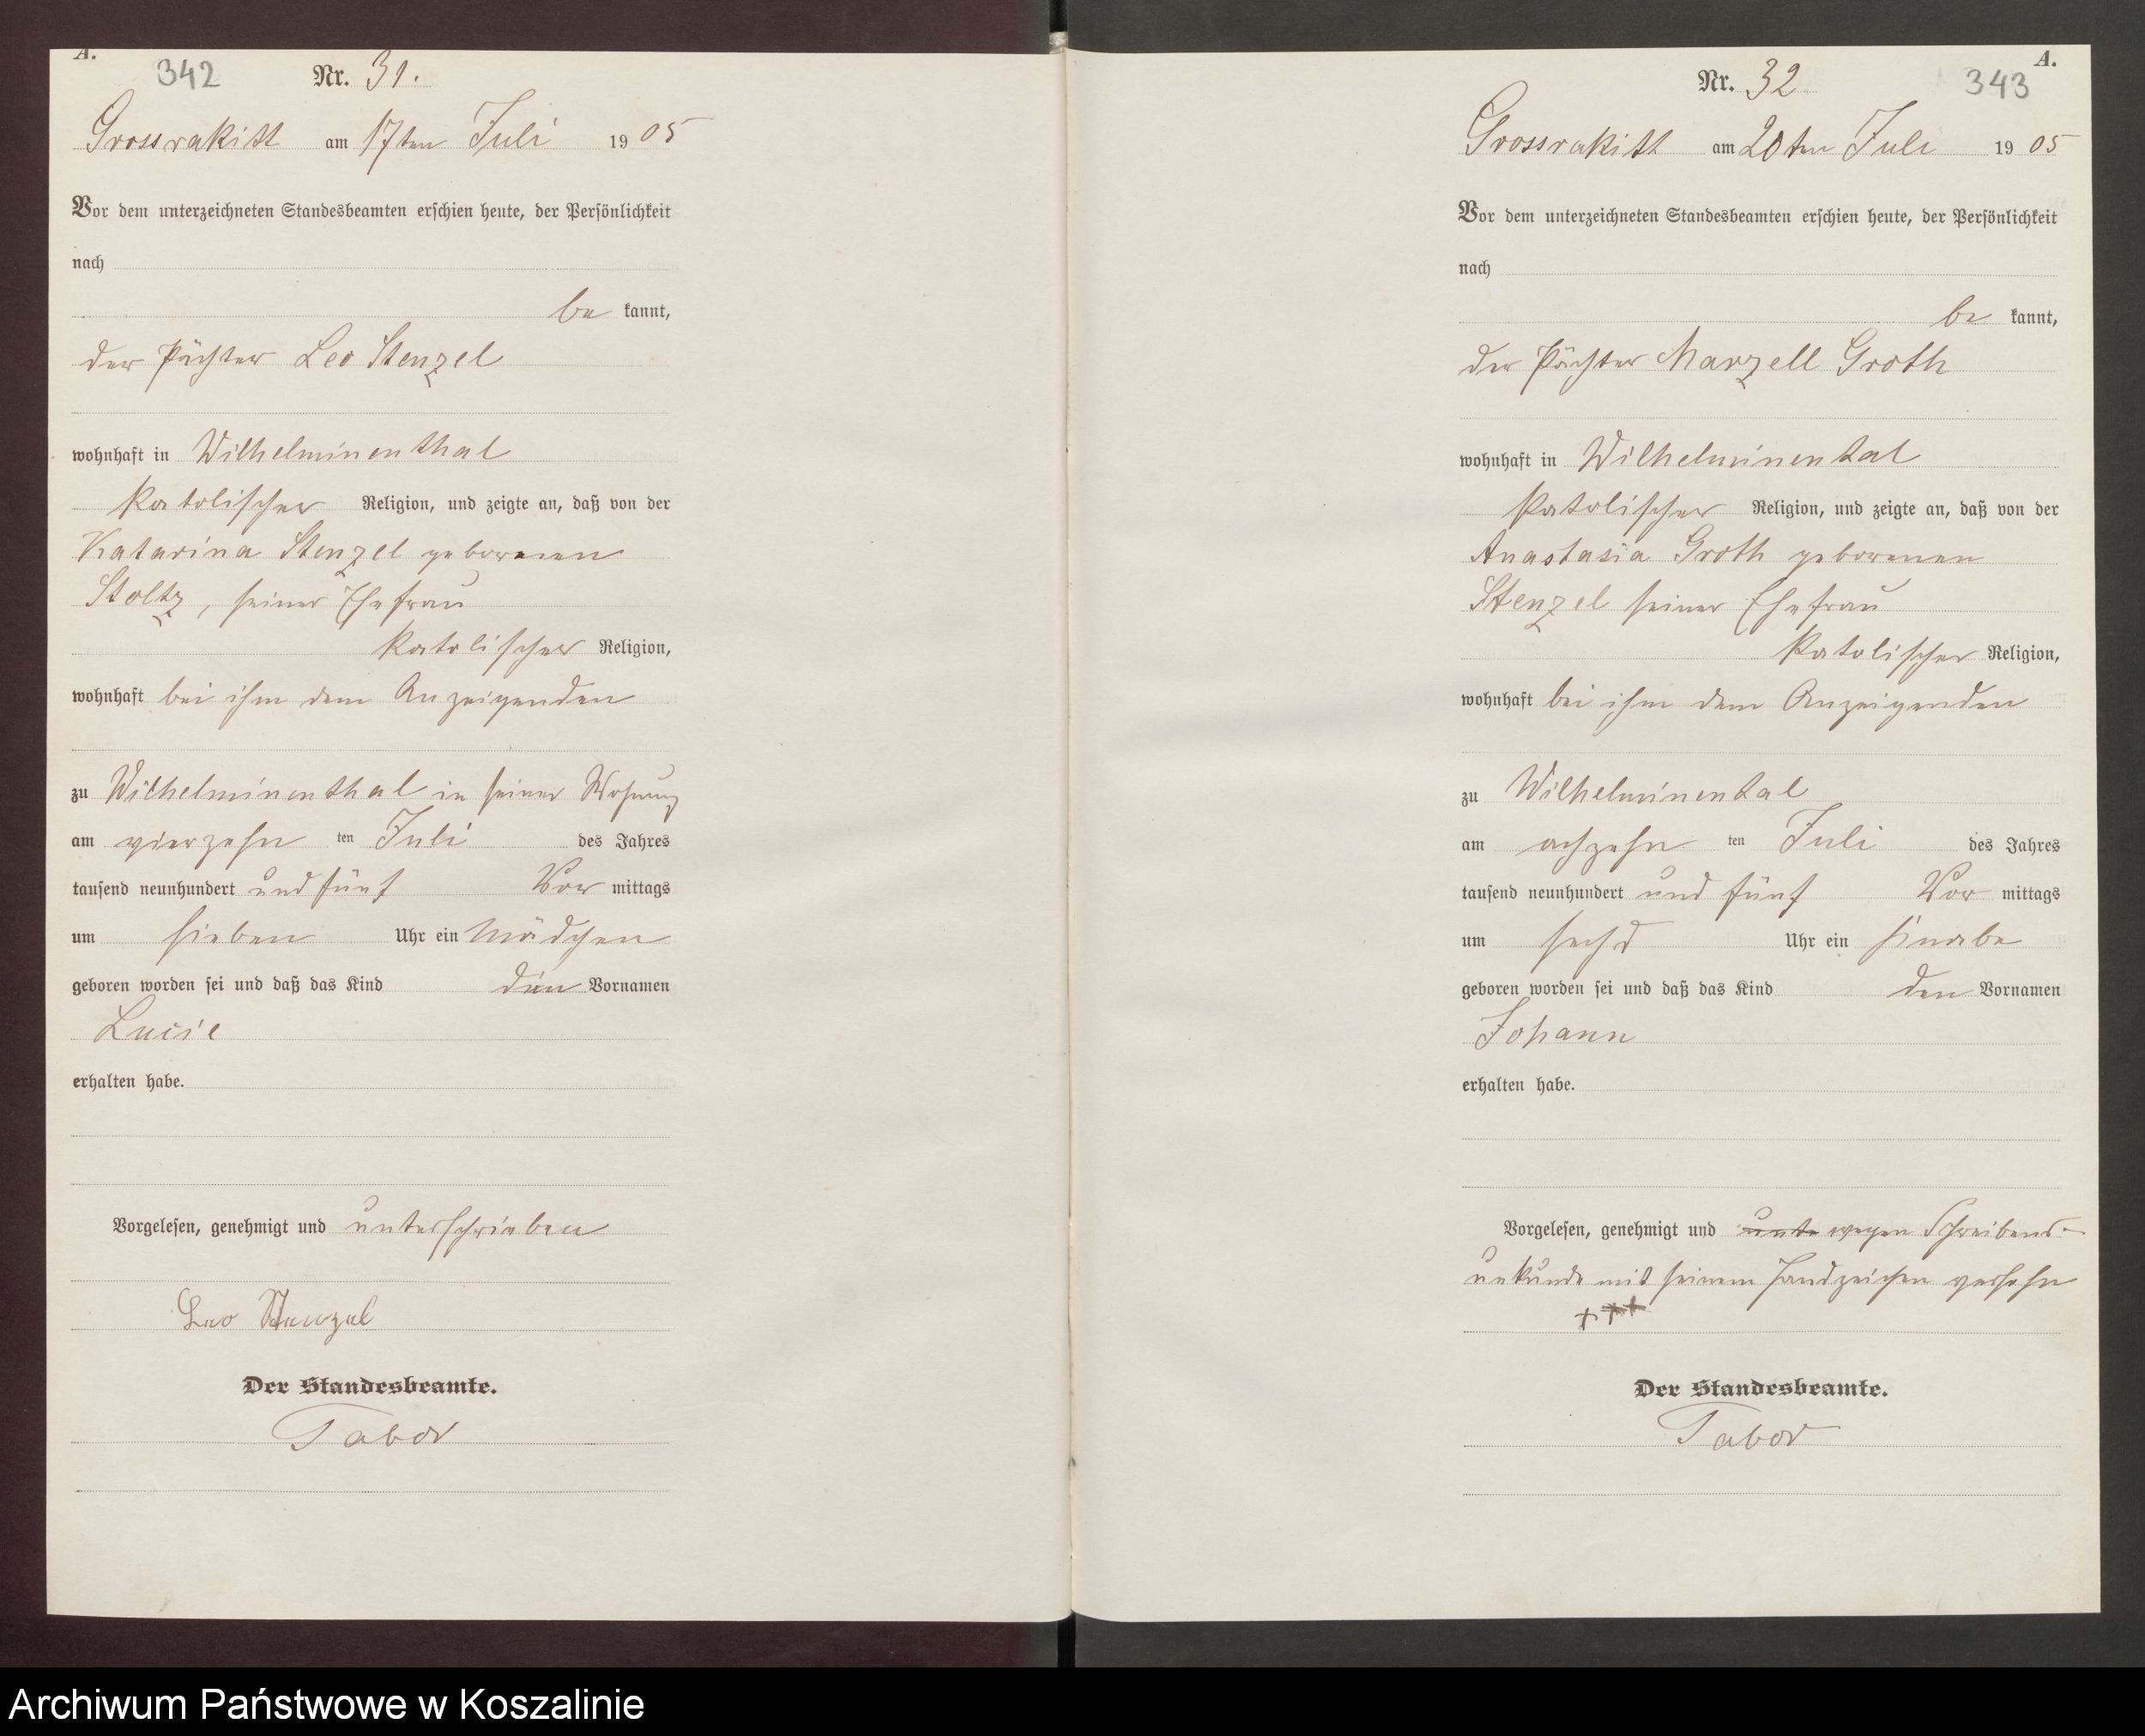 A.
342 Nr. 31.
Grossrakitt am 17ten Juli 1905
Vor dem unterzeichneten Standesbeamten erschien heute, der Persönlichkeit
nach
be kannt,
der Pächter Leo Stenzel
wohnhaft in Wilhelminenthal
katolischer Religion, und zeigte an, daß von der
Katarina Stenzel geborenen
Stoltz, seiner Ehefrau
katolischer Religion,
wohnhaft bei ihm dem Anzeigenden
zu Wilhelminenthal in seiner Wohnung
am vierzehn ten Juli des Jahres
tausend neunhundert und fünf Vor mittags
um sieben Uhr ein Mädchen
geboren worden sei und daß das Kind den Vornamen
Lucie
erhalten habe.
Vorgelesen, genehmigt und unterschrieben
Leo Stenzel
Der Standesbeamte.
Tabor
A.
Nr. 32 343
Grossrakitt am 20ten Juli 1905
Vor dem unterzeichneten Standesbeamten erschien heute, der Persönlichkeit
nach
be kannt,
der Pächter Marzell Groth
wohnhaft in Wilhelminental
katolischer Religion, und zeigte an, daß von der
Anastasia Groth geborenen
Stenzel seiner Ehefrau
katolischer Religion,
wohnhaft bei ihm dem Anzeigenden
zu Wilhelminental
am achzehn ten Juli des Jahres
tausend neunhundert und fünf Vor mittags
um sechs Uhr ein Knabe
geboren worden sei und daß das Kind den Vornamen
Johann
erhalten habe.
Vorgelesen, genehmigt und unte wegen Schreibens-
unkunde mit seinem Handzeichen versehn
+++
Der Standesbeamte.
Tabor
Archiwum Państwowe w Koszalinie